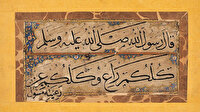 قال رسول الله صلى الله عليه وسلم
كلكم راع وكلكم
عن رعيته